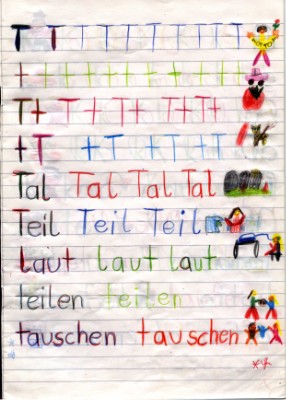 T T T T T T T T T
t t t t t t t t t t t t t t
Tt Tt Tt Tt Tt
tT tT tT tT
Tal Tal Tal Tal
Teil Teil Teil
Laut laut laut
teilen teilen
tauschen tauschen